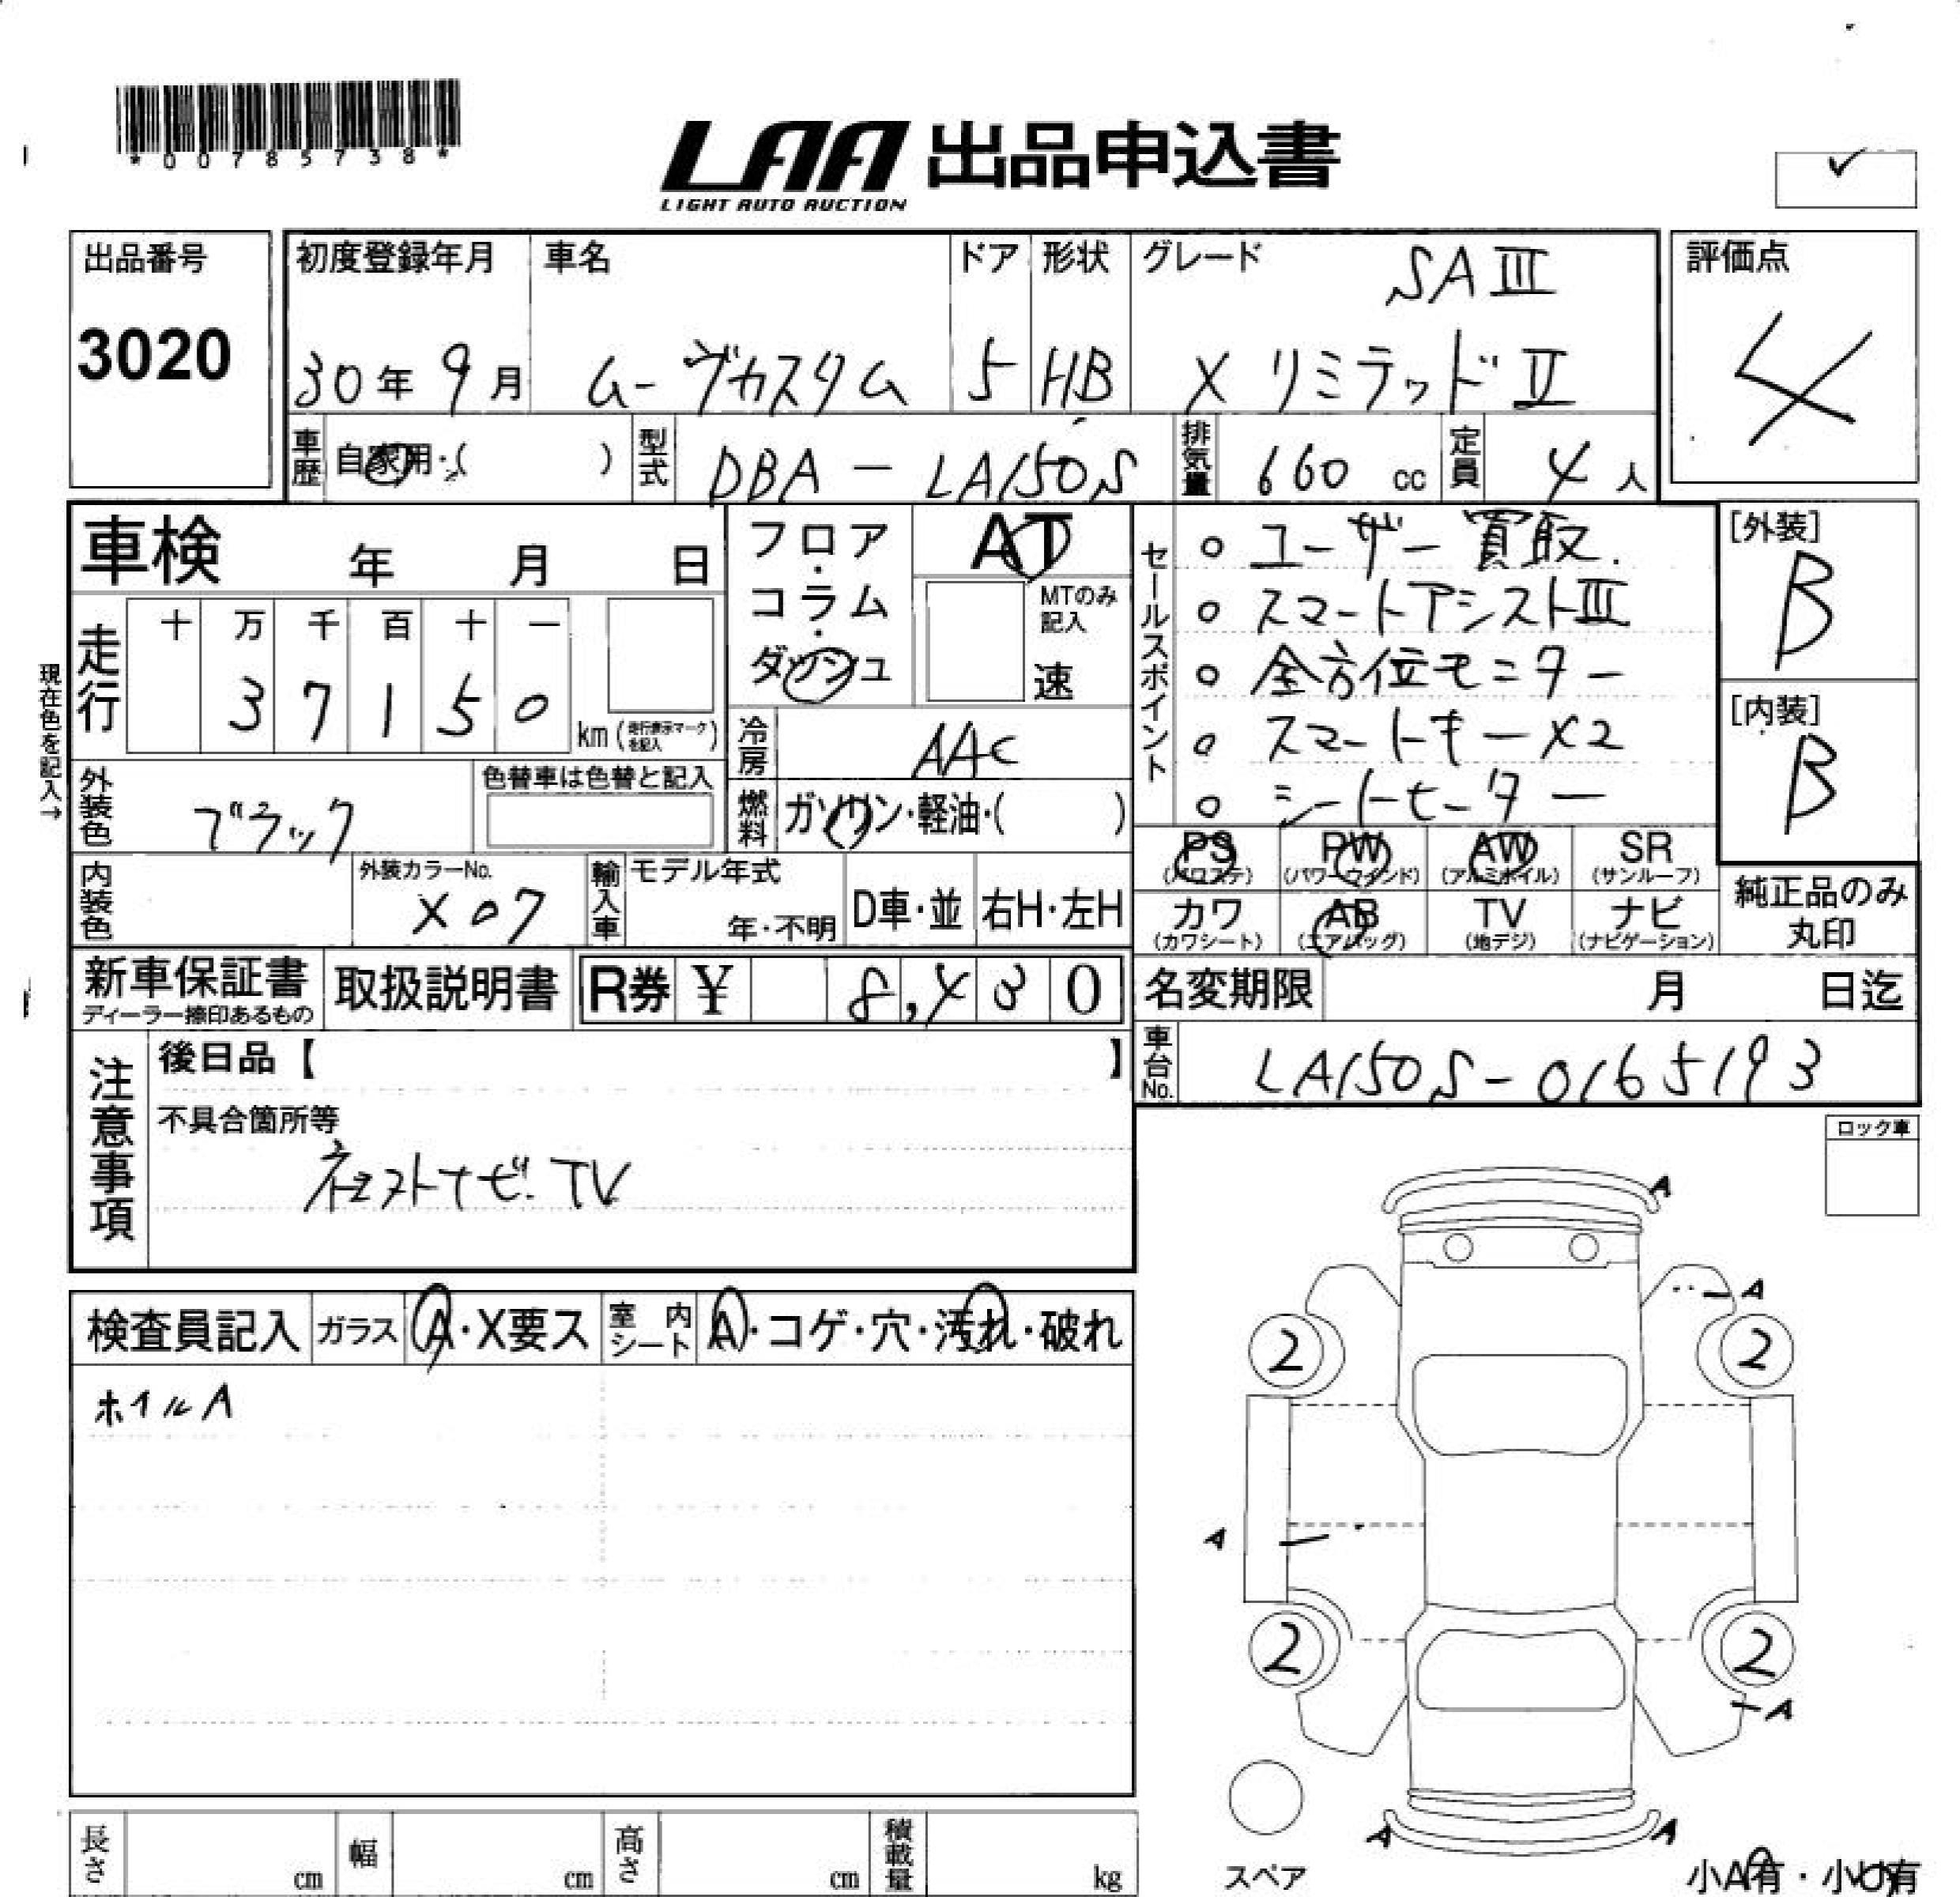 *00785738*
LAA 出品申込書
LIGHT AUTO AUCTION
✓
出品番号
3020
初度登録年月
30年9月
車名
ムーヴカスタム
ドア
5
形状
HB
グレード
SAⅢ
XリミテッドⅡ
評価点
4
車歴
自家用・( )
型式
DBA-LA150S
排気量
660 cc
定員
4人
車検 年 月 日
走行
十 万 千 百 十 一
3 7 1 5 0
km(走行表示マークを記入)
現在色を記入→
外装色
ブラック
色替車は色替と記入
内装色
外装カラーNo.
X07
フロア・コラム・ダッシュ
AT
MTのみ記入
速
冷房
AAC
燃料
ガソリン・軽油・( )
輸入車
モデル年式
年・不明
D車・並
右H・左H
セールスポイント
○ユーザー買取.
○スマートアシストⅢ
○全方位モニター
○スマートキーX2
○シートヒーター
[外装]
B
[内装]
B
PS
(パワステ)
PW
(パワーウインド)
AW
(アルミホイル)
SR
(サンルーフ)
カワ
(カワシート)
AB
(エアバッグ)
TV
(地デジ)
ナビ
(ナビゲーション)
純正品のみ
丸印
新車保証書
ディーラー捺印あるもの
取扱説明書
R券 ¥ 8,430
名変期限 月 日迄
車台No.
LA150S-0165193
注意事項
後日品【 】
不具合箇所等
ネクストナビ.TV
ロック車
検査員記入
ガラス
A・X要ス
室内シート
A・コゲ・穴・汚れ・破れ
ホイルA
A
A
2
2
A
2
2
A
A
A
スペア
小A有・小U有
長さ cm
幅 cm
高さ cm
積載量 kg